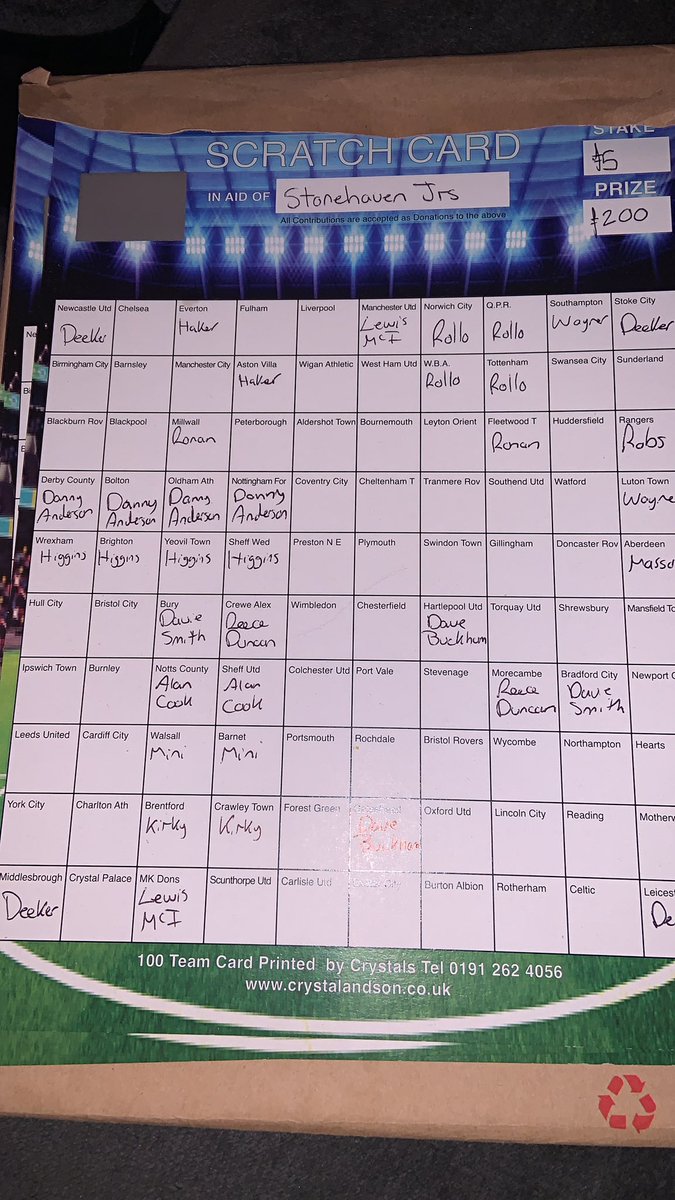 STAKE
SCRATCH CARD
£5
IN AID OF Stonehaven Jrs
PRIZE
All Contributions are accepted as Donations to the above
£200
Newcastle Utd Chelsea Everton Fulham Liverpool Manchester Utd Norwich City Q.P.R. Southampton Stoke City
Deeker Haker Lewis McI Rollo Rollo Wayner Deeker
Birmingham City Barnsley Manchester City Aston Villa Wigan Athletic West Ham Utd W.B.A. Tottenham Swansea City Sunderland
Haker Rollo Rollo
Blackburn Rov Blackpool Millwall Peterborough Aldershot Town Bournemouth Leyton Orient Fleetwood T Huddersfield Rangers
Ronan Ronan Robs
Derby County Bolton Oldham Ath Nottingham For Coventry City Cheltenham T Tranmere Rov Southend Utd Watford Luton Town
Danny Anderson Danny Anderson Danny Anderson Danny Anderson Wayne
Wrexham Brighton Yeovil Town Sheff Wed Preston N E Plymouth Swindon Town Gillingham Doncaster Rov Aberdeen
Higgins Higgins Higgins Higgins Masso
Hull City Bristol City Bury Crewe Alex Wimbledon Chesterfield Hartlepool Utd Torquay Utd Shrewsbury Mansfield To
Davie Smith Reece Duncan Dave Buckham
Ipswich Town Burnley Notts County Sheff Utd Colchester Utd Port Vale Stevenage Morecambe Bradford City Newport C
Alan Cook Alan Cook Reece Duncan Dave Smith
Leeds United Cardiff City Walsall Barnet Portsmouth Rochdale Bristol Rovers Wycombe Northampton Hearts
Mini Mini
York City Charlton Ath Brentford Crawley Town Forest Green Oxford Utd Lincoln City Reading Motherw
Kirky Kirky Dave Buckham
Middlesbrough Crystal Palace MK Dons Scunthorpe Utd Carlisle Utd Burton Albion Rotherham Celtic Leicest
Deeker Lewis McI De
100 Team Card Printed by Crystals Tel 0191 262 4056
www.crystalandson.co.uk